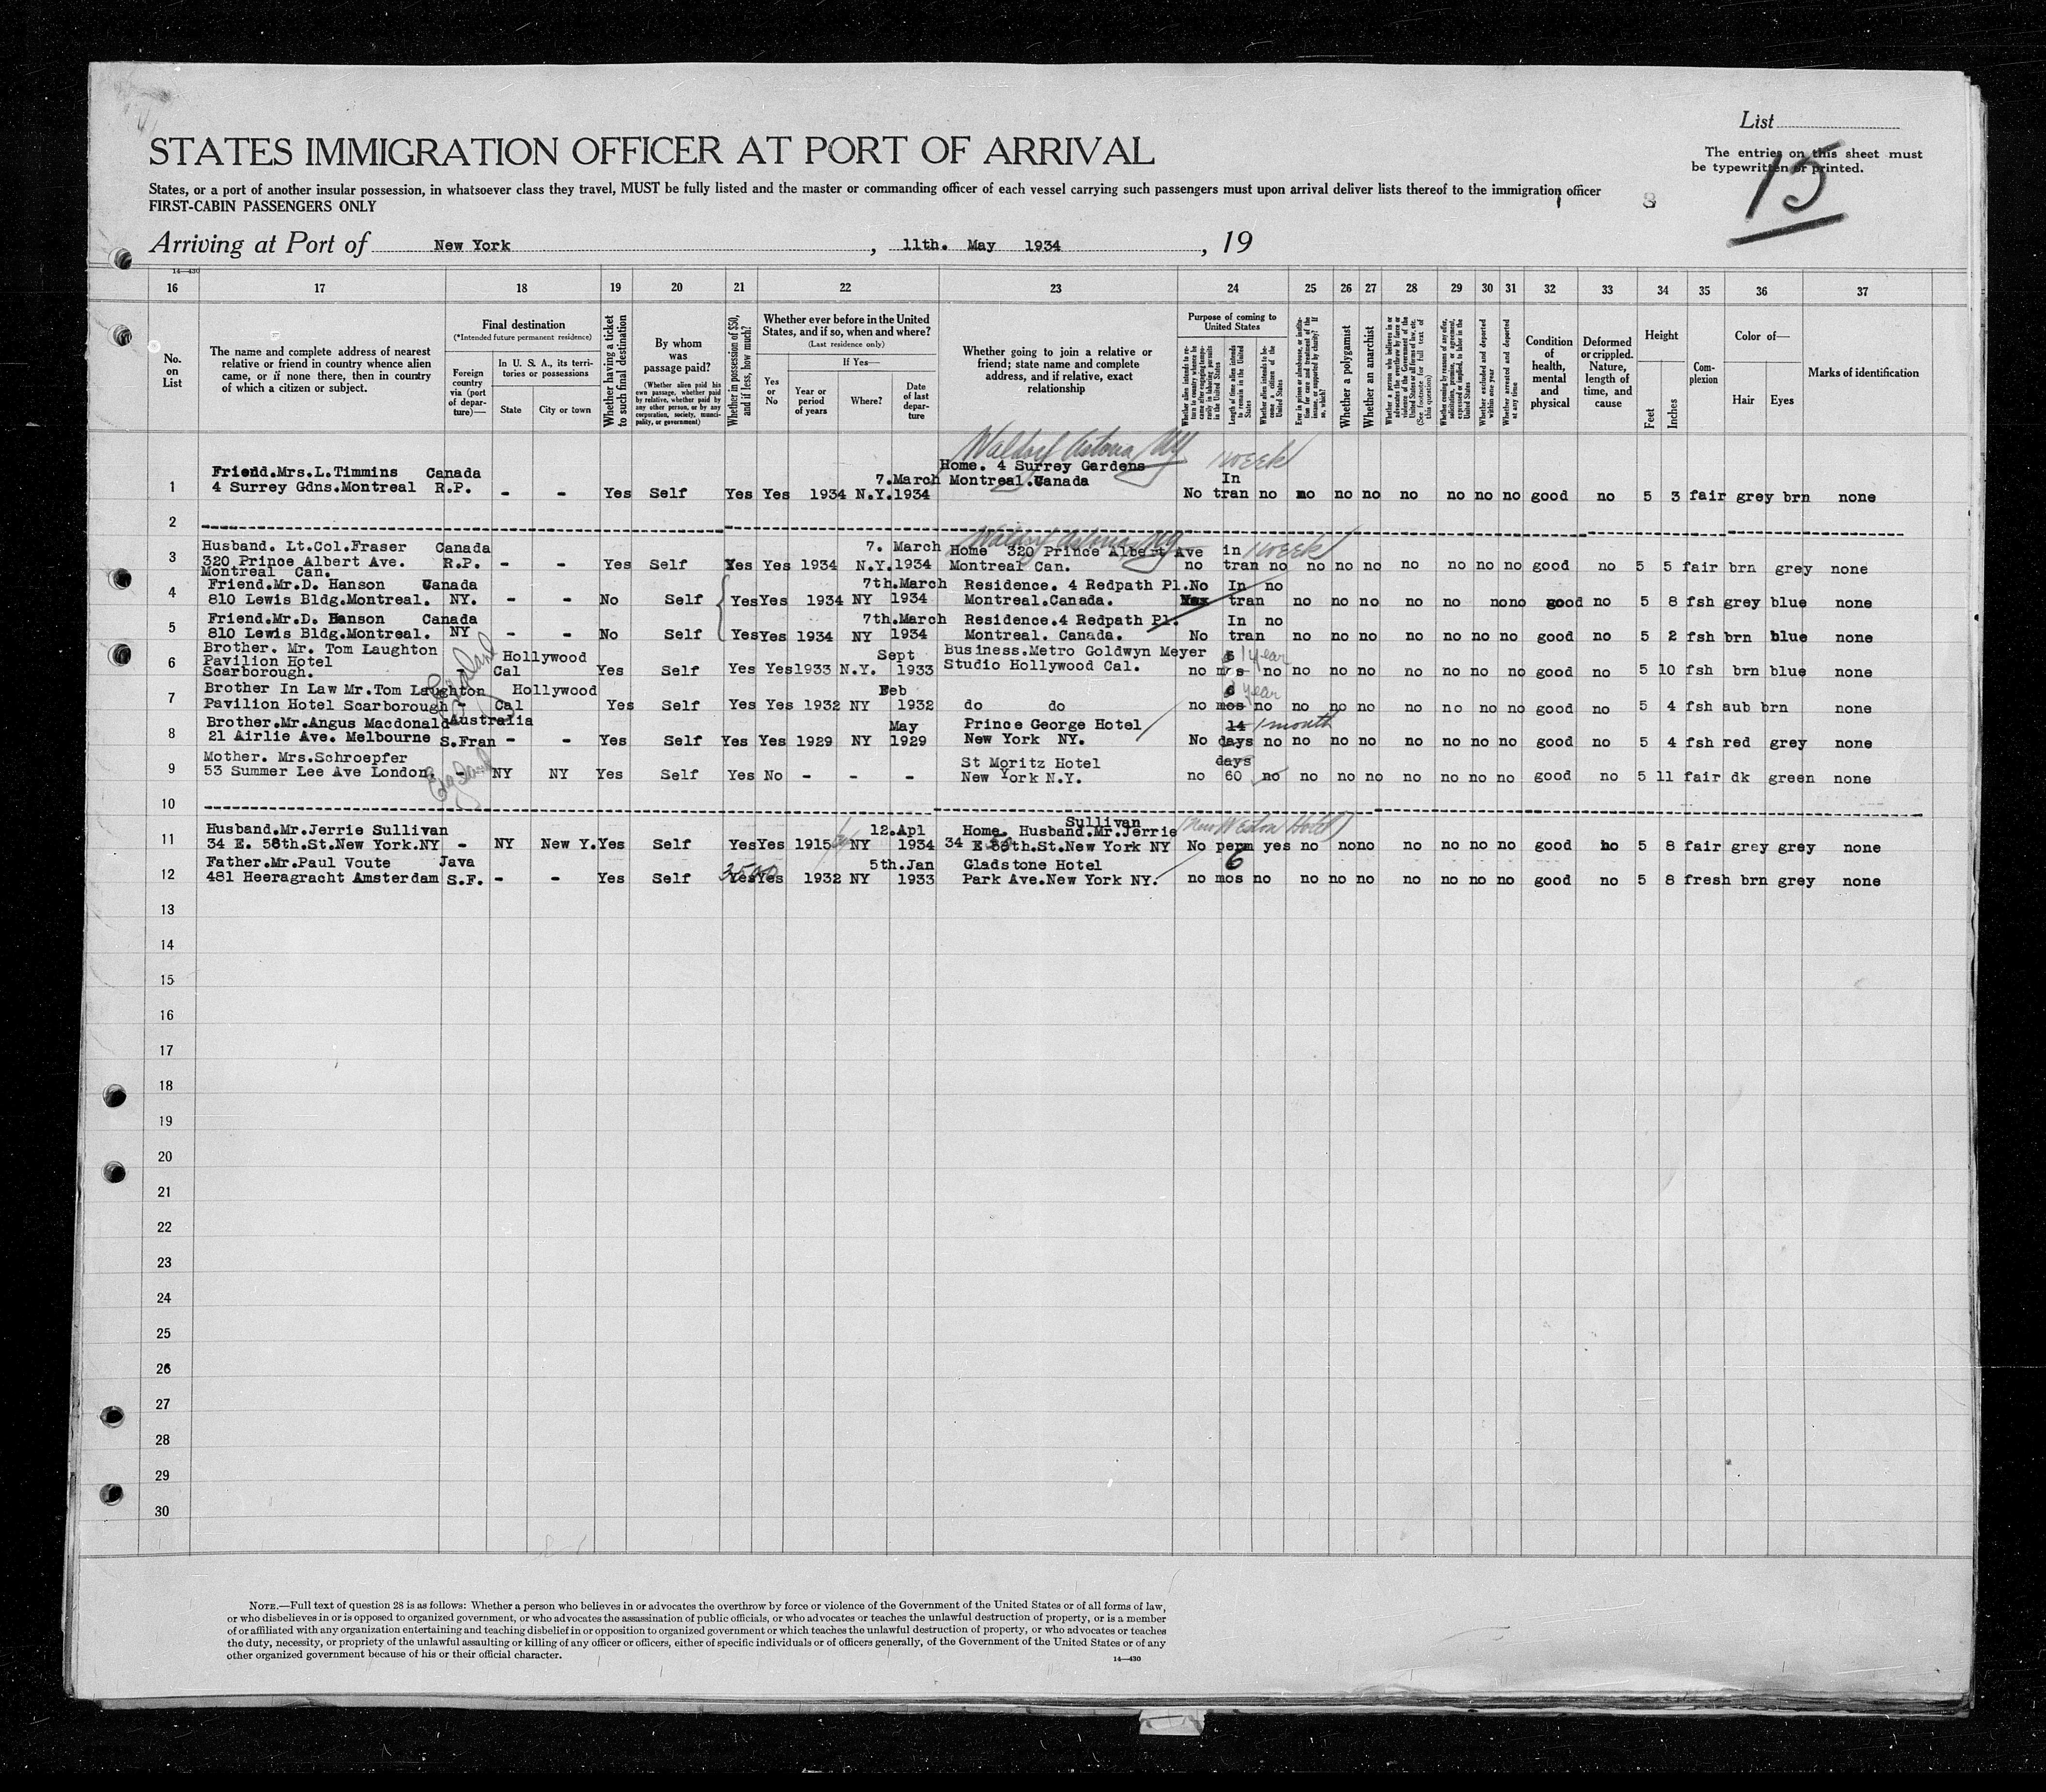 List
STATES IMMIGRATION OFFICER AT PORT OF ARRIVAL
The entries on this sheet must
be typewritten or printed.
15
States, or a port of another insular possession, in whatsoever class they travel, MUST be fully listed and the master or commanding officer of each vessel carrying such passengers must upon arrival deliver lists thereof to the immigration officer
FIRST-CABIN PASSENGERS ONLY
Arriving at Port of New York, 11th. May 1934, 19
14—430
16 17 18 19 20 21 22 23 24 25 26 27 28 29 30 31 32 33 34 35 36 37
No. on List
The name and complete address of nearest relative or friend in country whence alien came, or if none there, then in country of which a citizen or subject.
Final destination
(*Intended future permanent residence)
Foreign country via (port of departure)—
In U. S. A., its territories or possessions
State
City or town
Whether having a ticket to such final destination
By whom was passage paid?
(Whether alien paid his own passage, whether paid by relative, whether paid by any other person, or by any corporation, society, municipality, or government)
Whether in possession of $50, and if less, how much?
Whether ever before in the United States, and if so, when and where?
(Last residence only)
Yes or No
If Yes—
Year or period of years
Where?
Date of last departure
Whether going to join a relative or friend; state name and complete address, and if relative, exact relationship
Purpose of coming to United States
Whether alien intends to return to country whence he came after engaging temporarily in laboring pursuits in the United States
Length of time alien intends to remain in the United States
Whether alien intends to become a citizen of the United States
Ever in prison or almshouse, or institution for care and treatment of the insane, or supported by charity? If so, which?
Whether a polygamist
Whether an anarchist
Whether a person who believes in or advocates the overthrow by force or violence of the Government of the United States or all forms of law, etc. (See footnote for full text of this question)
Whether coming by reason of any offer, solicitation, promise, or agreement, expressed or implied, to labor in the United States
Whether excluded and deported within one year
Whether arrested and deported at any time
Condition of health, mental and physical
Deformed or crippled. Nature, length of time, and cause
Height
Feet
Inches
Complexion
Color of—
Hair
Eyes
Marks of identification
Waldorf Astoria NY 1 week
Friend.Mrs.L.Timmins Canada 7.March Home. 4 Surrey Gardens In
1 4 Surrey Gdns.Montreal R.P. - - Yes Self Yes Yes 1934 N.Y. 1934 Montreal.Canada No tran no no no no no no no no good no 5 3 fair grey brn none
2
Waldorf Astoria NY 1 week
Husband. Lt.Col.Fraser Canada 7. March Home 320 Prince Albert Ave in
3 320 Prince Albert Ave. R.P. - - Yes Self Yes Yes 1934 N.Y. 1934 Montreal Can. no tran no no no no no no no no good no 5 5 fair brn grey none
Montreal Can.
Friend.Mr.D. Hanson Canada 7th.March Residence. 4 Redpath Pl. No In no
4 810 Lewis Bldg.Montreal. NY. - - No Self Yes Yes 1934 NY 1934 Montreal.Canada. tran no no no no no no no good no 5 8 fsh grey blue none
Friend.Mr.D. Hanson Canada 7th.March Residence.4 Redpath Pl. In no
5 810 Lewis Bldg.Montreal. NY - - No Self Yes Yes 1934 NY 1934 Montreal. Canada. No tran no no no no no no no good no 5 2 fsh brn blue none
Brother. Mr. Tom Laughton England Hollywood Sept Business.Metro Goldwyn Meyer 1 year
6 Pavilion Hotel - Cal Yes Self Yes Yes 1933 N.Y. 1933 Studio Hollywood Cal. no no no no no no no no no good no 5 10 fsh brn blue none
Scarborough.
Brother In Law Mr.Tom Laughton Hollywood Feb year
7 Pavilion Hotel Scarborough - Cal Yes Self Yes Yes 1932 NY 1932 do do no mos no no no no no no no no good no 5 4 fsh aub brn none
Brother.Mr.Angus Macdonald Australia May Prince George Hotel 14 1 month
8 21 Airlie Ave. Melbourne S.Fran - - Yes Self Yes Yes 1929 NY 1929 New York NY. No days no no no no no no no no good no 5 4 fsh red grey none
Mother. Mrs.Schroepfer England St Moritz Hotel days
9 53 Summer Lee Ave London. - NY NY Yes Self Yes No - - - New York N.Y. no 60 no no no no no no no no good no 5 11 fair dk green none
10
Husband.Mr.Jerrie Sullivan 12.Apl Home. Husband.Mr.Jerrie Sullivan (New Weston Hotel)
11 34 E. 58th.St.New York.NY - NY New Y. Yes Self Yes Yes 1915 NY 1934 34 E 58th.St.New York NY No perm yes no no no no no no no good no 5 8 fair grey grey none
Father.Mr.Paul Voute Java 5th.Jan Gladstone Hotel 6
12 481 Heeragracht Amsterdam S.F. - - Yes Self Yes Yes 1932 NY 1933 Park Ave.New York NY. no mos no no no no no no no no good no 5 8 fresh brn grey none
13
14
15
16
17
18
19
20
21
22
23
24
25
26
27
28
29
30
NOTE.—Full text of question 28 is as follows: Whether a person who believes in or advocates the overthrow by force or violence of the Government of the United States or of all forms of law,
or who disbelieves in or is opposed to organized government, or who advocates the assassination of public officials, or who advocates or teaches the unlawful destruction of property, or is a member
of or affiliated with any organization entertaining and teaching disbelief in or opposition to organized government or which teaches the unlawful destruction of property, or who advocates or teaches
the duty, necessity, or propriety of the unlawful assaulting or killing of any officer or officers, either of specific individuals or of officers generally, of the Government of the United States or of any
other organized government because of his or their official character.
14—430